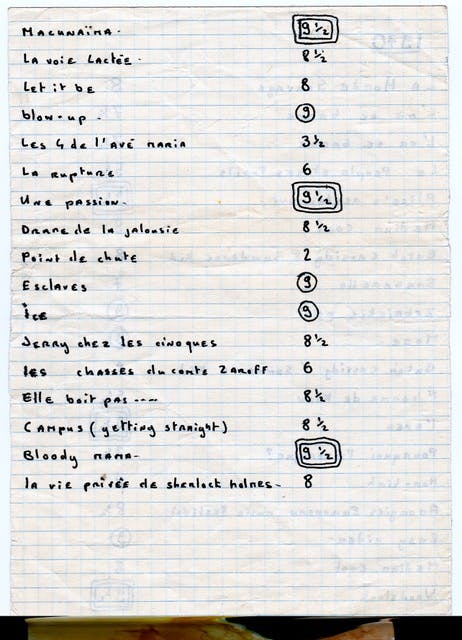 Macunaïma. 9 1/2
La voie Lactée. 8 1/2
Let it be 8
blow-up. 9
Les 4 de l'avé maria 3 1/2
La rupture 6
Une passion. 9 1/2
Drame de la jalousie 8 1/2
Point de chute 2
Esclaves 9
Ice 9
Jerry chez les cinoques 8 1/2
les chasses du comte Zaroff 6
Elle boit pas .... 8 1/2
Campus (getting straight) 8 1/2
Bloody mama. 9 1/2
la vie privée de sherlock holmes. 8